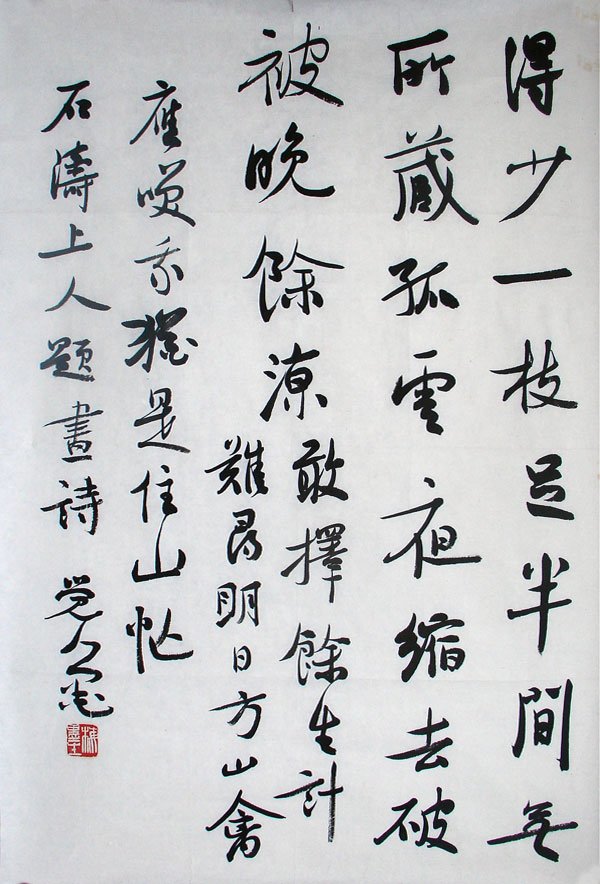 得少一枝足半間無
所藏孤雲夜縮去破
被晚餘涼敢擇餘生計
難尋明日方山禽
應咲我猶是住山忙
石濤上人題畫詩